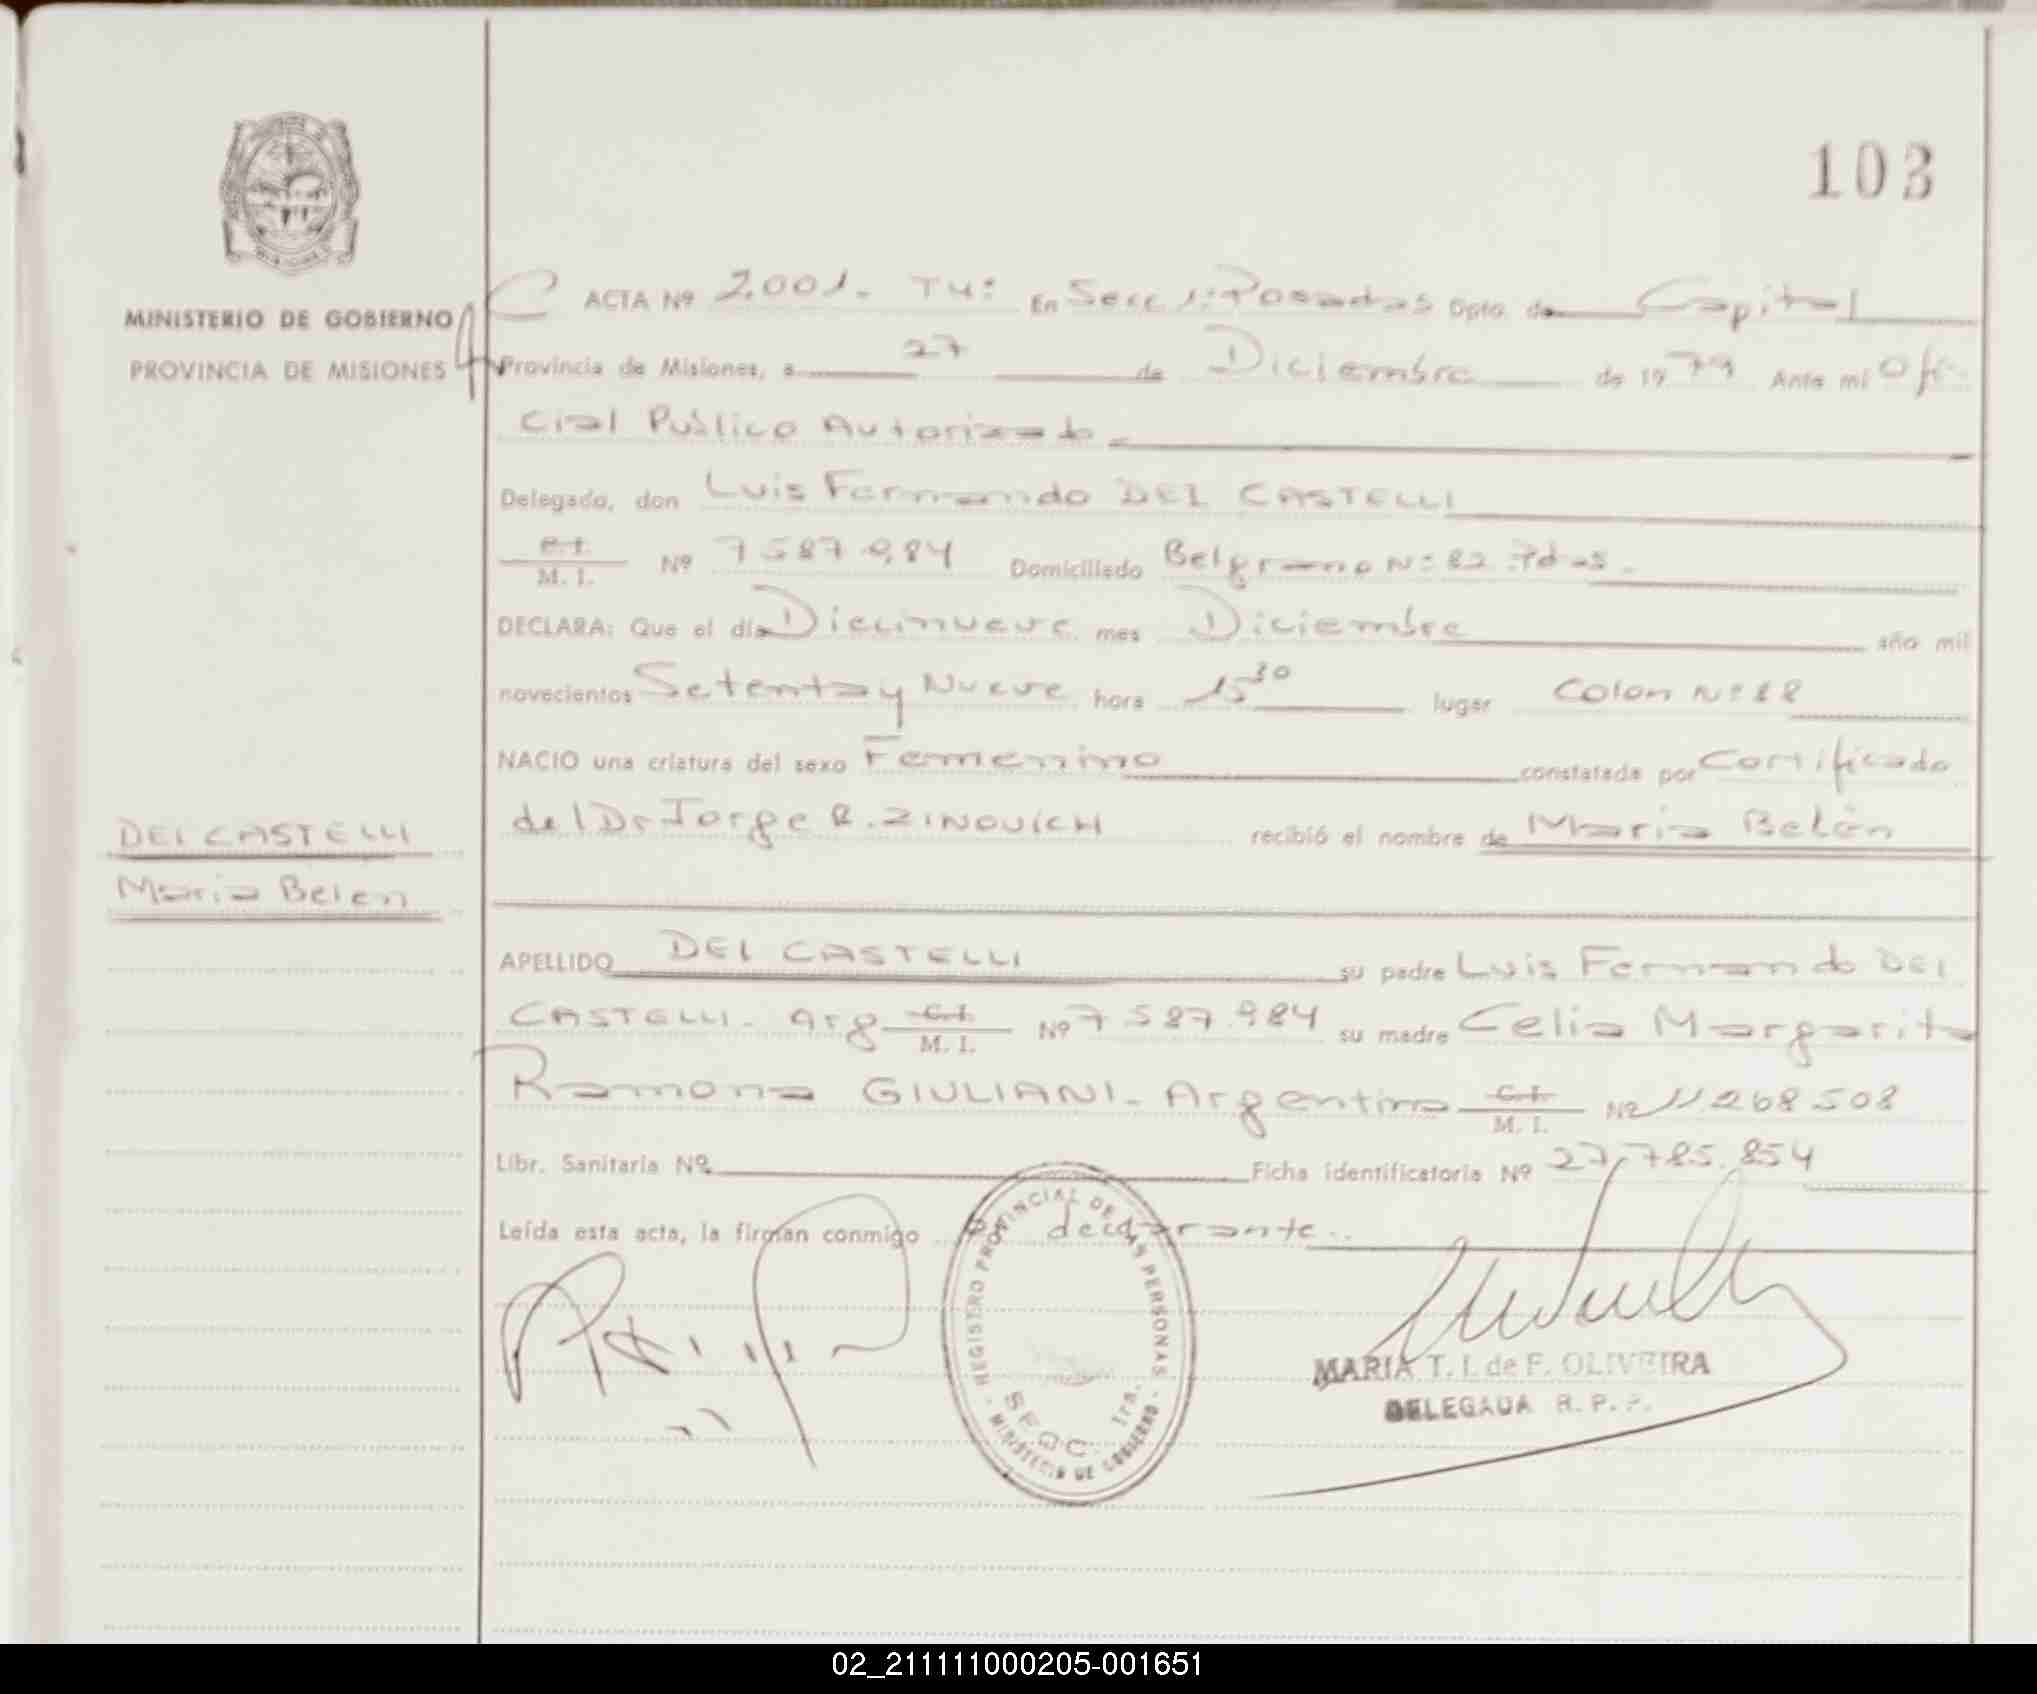 103
MINISTERIO DE GOBIERNO
PROVINCIA DE MISIONES
ACTA Nº 2.001. T4: En Secc 1: Posadas Dpto. de Capital
Provincia de Misiones, a 27 de Diciembre de 1979 Ante mi Ofi-
cial Publico Autorizado
Delegado, don Luis Fernando DEI CASTELLI
C.I. M. I. Nº 7587.984 Domiciliado Belgrano Nº 82 Pdas.
DECLARA: Que el día Diecinueve mes Diciembre año mil
novecientos Setenta y Nueve hora 15 30 lugar Colon Nº 88
NACIO una criatura del sexo Femenino constatada por Certificado
del Dr Jorge R. ZINOVICH recibió el nombre de Maria Belén
DEI CASTELLI
Maria Belen
APELLIDO DEI CASTELLI su padre Luis Fernando DEI
CASTELLI. Arg C.I. M. I. Nº 7587.984 su madre Celia Margarita
Ramona GIULIANI. Argentina C.I. M. I. Nº 11.268.508
Libr. Sanitaria Nº Ficha identificatoria Nº 27.785.854
Leída esta acta, la firman conmigo declarante..
REGISTRO PROVINCIAL DE LAS PERSONAS
SECC. 1ra.
MINISTERIO DE GOBIERNO
MARIA T. I. de F. OLIVEIRA
DELEGADA R. P. P.
02_211111000205-001651